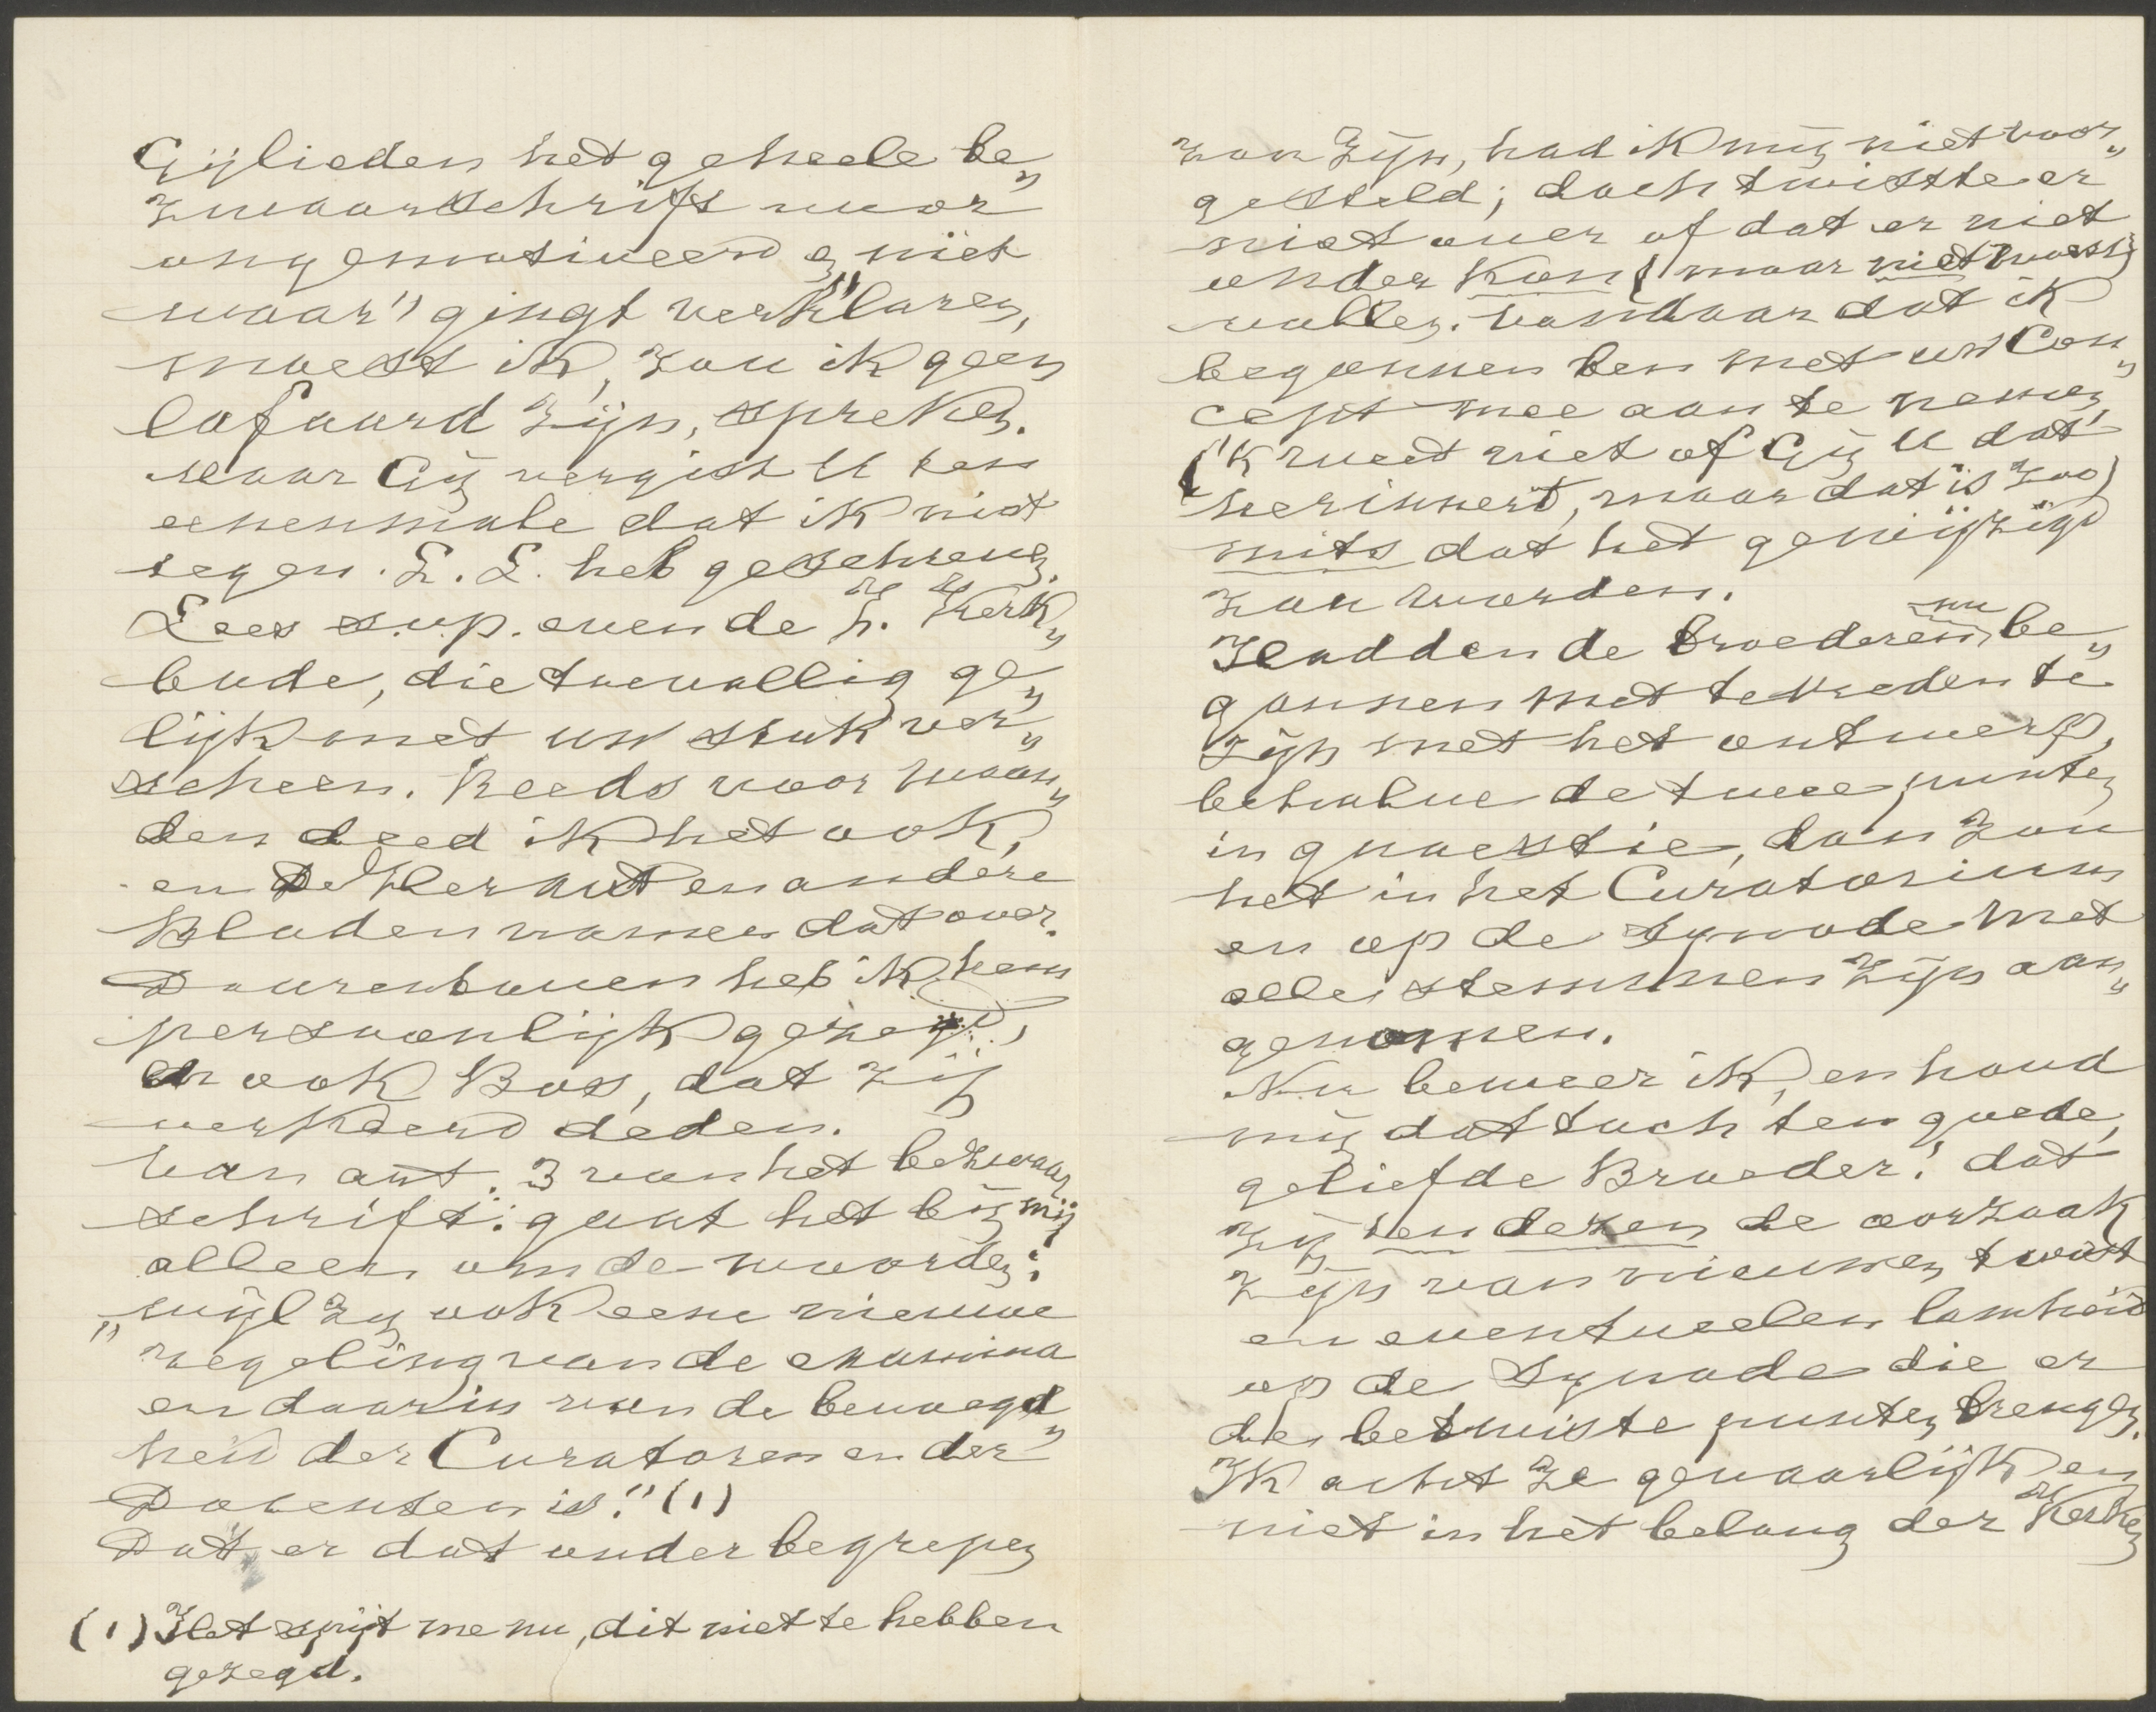 Gijlieden het geheele be„
zwaarschrift voor
ongemotiveerd „niet
waar" gingt verklaren,
moest ik, zou ik geen
lafaard zijn, spreken.
Maar Gij vergist U ten
eenenmale dat ik niet
tegen L. L. heb geschreven.
Lees s.v.p. even de h. Kerk„
bode, die toevallig ge„
lijk met uw stuk ver„
scheen. Reeds voor maan„
den deed ik het ook,
en De Heraut en andere
Bladen namen dat over.
Daarenboven heb ik hem
persoonlijk gezegd,
en ook Bos, dat zij
verkeerd deden.
Van art. 3 van het bezwaar
schrift: gaat het bij mij
alleen om de woorden:
„wijl zij ook eene nieuwe
regeling van de examina
en daarin van de bevoegd„
heid der Curatoren en der
Docenten is." (1)
Dat er dat onder begrepen
(1) Het spijt me nu, dit niet te hebben
gezegd.
zou zijn, had ik mij niet voor„
gesteld; doch twistte er
niet over of dat er niet
onder kon (maar niet moest)
vallen. Vandaar dat ik
begonnen ben met uw Con„
cept mee aan te nemen
('k weet niet of Gij U dat
herinnert, maar dat is zoo)
mits dat het gewijzigd
zou worden.
Hadden de broederen nu be„
gonnen met tevreden te
zijn met het ontwerp,
behalve de twee punten
in quaestie, dan zou
het in het Curatorium
en op de Synode met
alle stemmen zijn aan„
genomen.
Nu beweer ik, en houd
mij dat toch ten goede,
geliefde Broeder! dat
zij ten dezen de oorzaak
zijn van nieuwen twist
en eventueelen lamheid
op de Synode die er
de betwiste punten brengen.
Ik acht ze gevaarlijk en
niet in het belang der Kerken